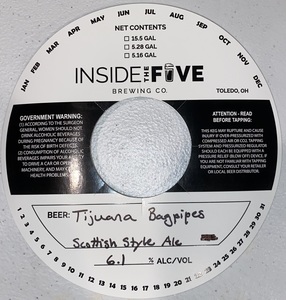 JAN FEB MAR APR MAY JUN JUL AUG SEP OCT NOV DEC
NET CONTENTS
15.5 GAL
5.28 GAL
5.16 GAL
INSIDE THE FIVE
BREWING CO.
TOLEDO, OH
GOVERNMENT WARNING:
(1) ACCORDING TO THE SURGEON
GENERAL, WOMEN SHOULD NOT
DRINK ALCOHOLIC BEVERAGES
DURING PREGNANCY BECAUSE OF
THE RISK OF BIRTH DEFECTS.
(2) CONSUMPTION OF ALCOHOLIC
BEVERAGES IMPAIRS YOUR ABILITY
TO DRIVE A CAR OR OPERATE
MACHINERY, AND MAY CAUSE
HEALTH PROBLEMS.
ATTENTION - READ
BEFORE TAPPING:
THIS KEG MAY RUPTURE AND CAUSE
INJURY IF OVER-PRESSURIZED WITH
COMPRESSED AIR OR CO2. TAPPING
SYSTEM AND PRESSURE REGULATOR
SHOULD EACH BE EQUIPPED WITH A
PRESSURE RELIEF (BLOW OFF) DEVICE. IF
YOU ARE NOT FAMILIAR WITH TAPPING
EQUIPMENT, CONSULT YOUR RETAILER
OR LOCAL BEER DISTRIBUTOR.
BEER: Tijuana Bagpipes
Scottish Style Ale
6.1 % ALC/VOL
1 2 3 4 5 6 7 8 9 10 11 12 13 14 15 16 17 18 19 20 21 22 23 24 25 26 27 28 29 30 31